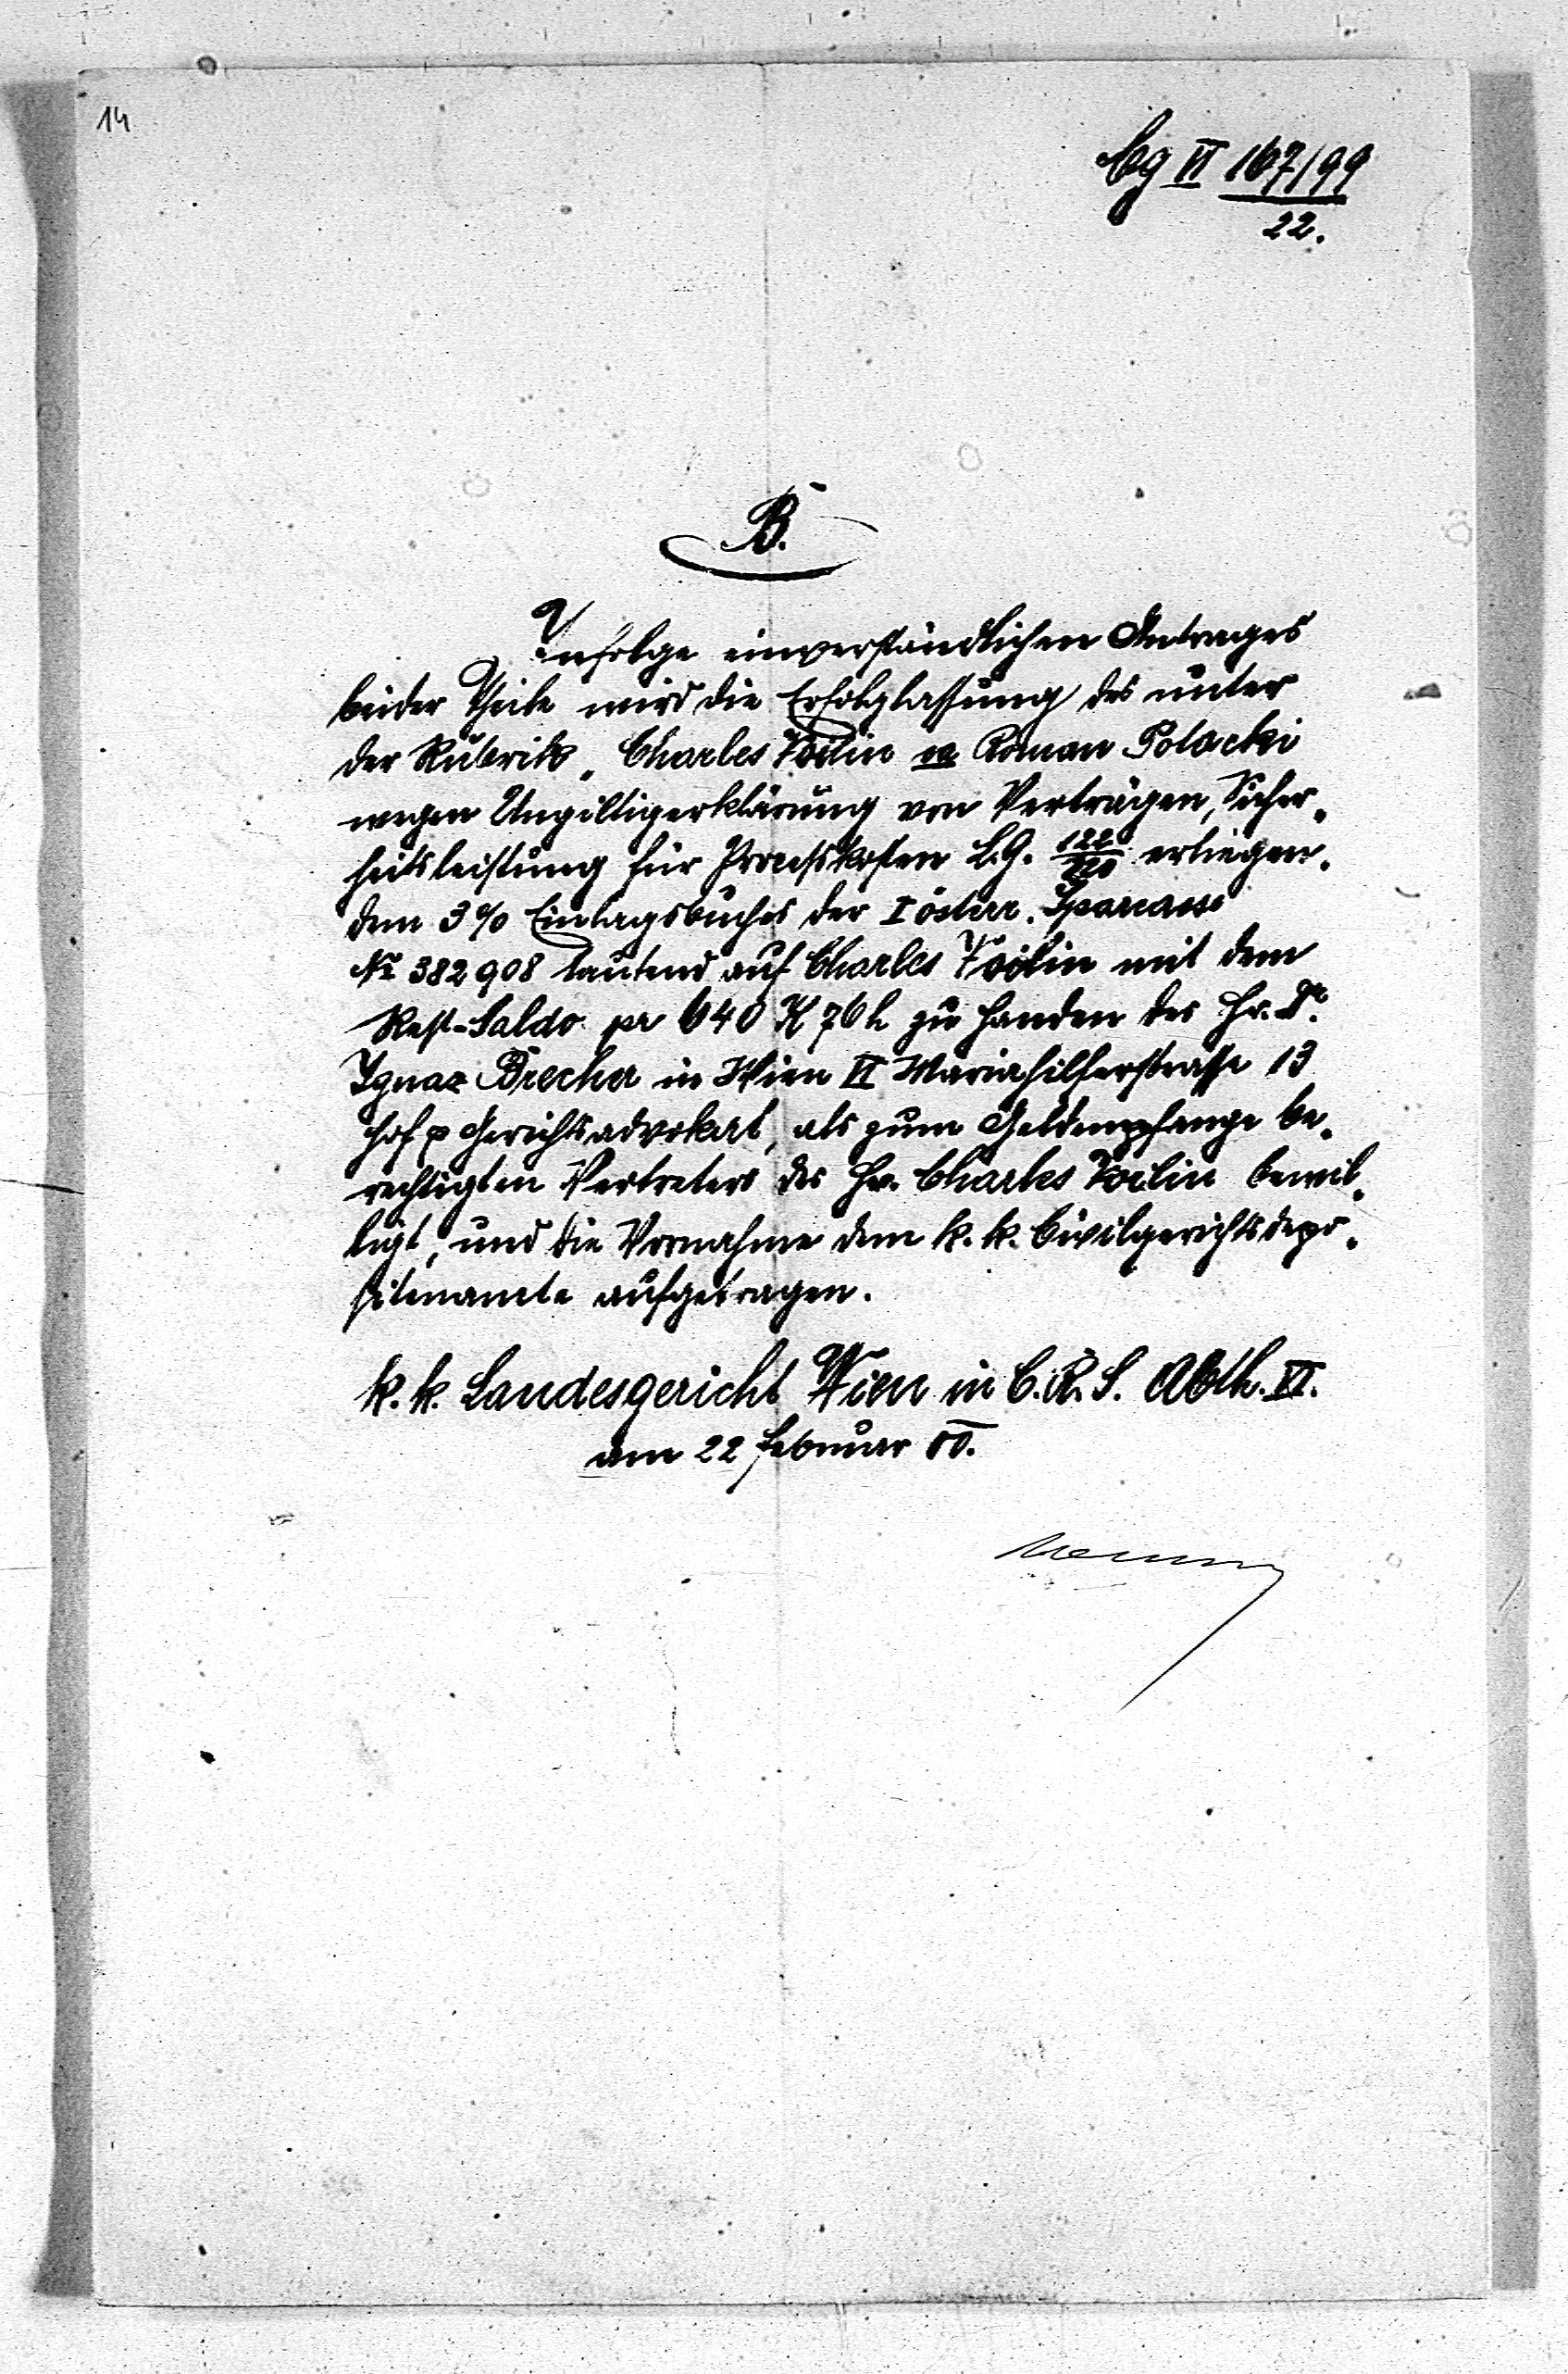 14
Cg VI 167/99
22.
B.
Infolge einverständlichen Antrages
beider Theile wird die Erfolglassung des unter
der Rubrik „ Charles Voilin ca Roman Potocki
wegen Ungiltigerklärung von Verträgen, Sicher-
heitsleistung für Proceßkosten L.G. erliegen-
den 3% Einlagsbuches der I österr. Sparcasse
No 382908 lautend auf Charles Voilin mit dem
Rest-Saldo pr 640 K 76 h zu Handen des Hr. Dr.
Ignaz Brecher in Wien VI Mariahilferstrasse 13
Hof & Gerichtsadvokat, als zum Geldempfange be-
rechtigten Vertreters des Hr. Charles Voilin bewil-
ligt, und die Vornahme dem k. k. Civilgerichtsdepo-
sitenamte aufgetragen.
k. k. Landesgericht Wien in C. R. S. Abth. VI.
am 22 Februar 00.